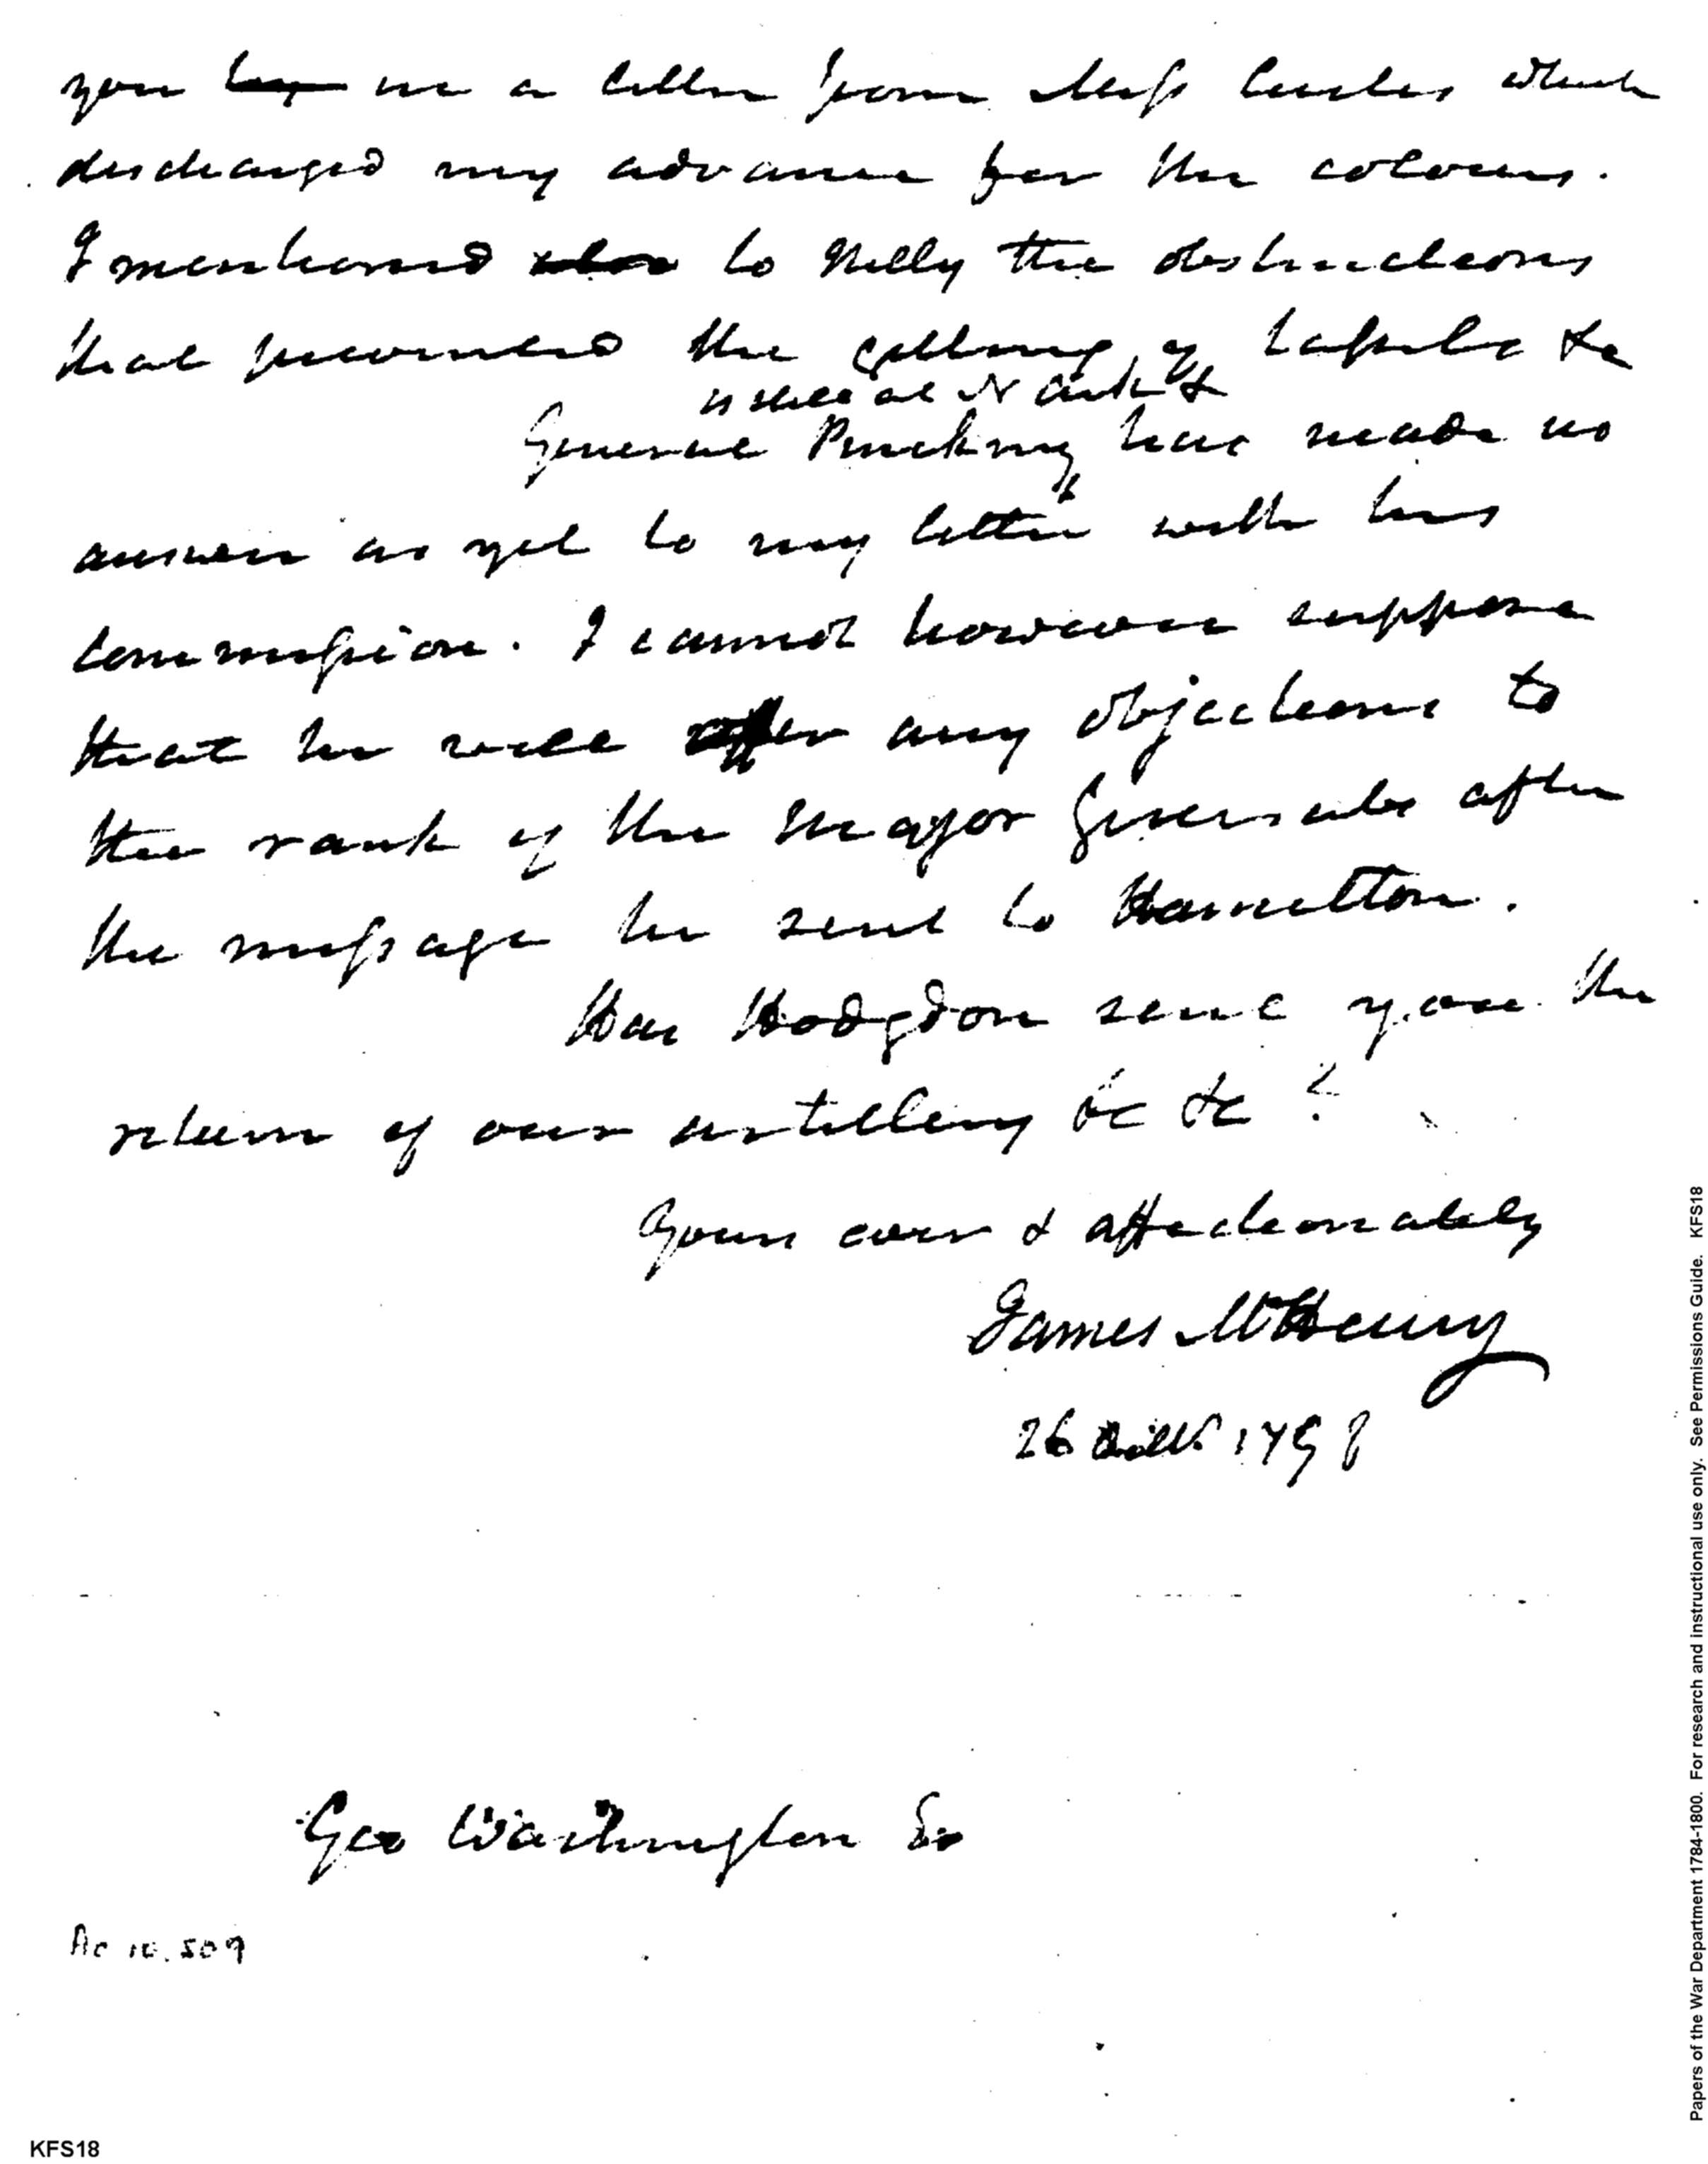 you in a letter from Miss Custis which
discharged my advance for the colours.
I mentioned to Nelly the obstructions
that prevented the getting of tassels &c
is still at N York &
General Pinckney has made no
answer as yet to my letter with his
commission. I cannot however suppose
that he will offer any objections to
the rank of the Major Generals after
the message he sent to Hamilton.
Has Hodgdon sent you the
return of our artillery &c &c?
Yours ever & affectionately
James McHenry
26 1798
Geo Washington
Ac 10,509
KFS18
Papers of the War Department 1784-1800. For research and instructional use only. See Permissions Guide. KFS18